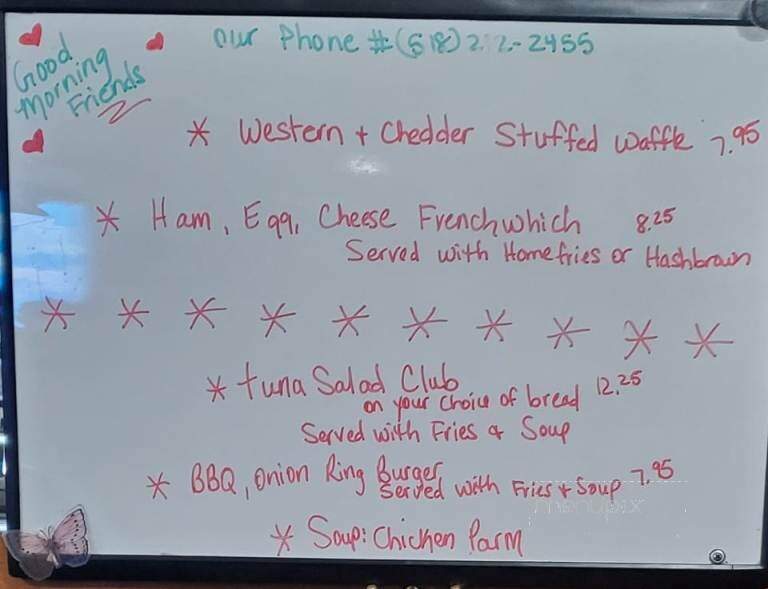 Our Phone # (518) 212-2455
Good
Morning
Friends
* Western + Chedder Stuffed Waffle 7.95
* Ham, Egg, Cheese Frenchwhich 8.25
Served with Homefries or Hashbrown
* * * * * * * * * *
* tuna Salad Club
on your choice of bread 12.25
Served with Fries & Soup
* BBQ, Onion Ring Burger
Served with Fries + Soup 7.95
menupix
* Soup: Chicken Parm